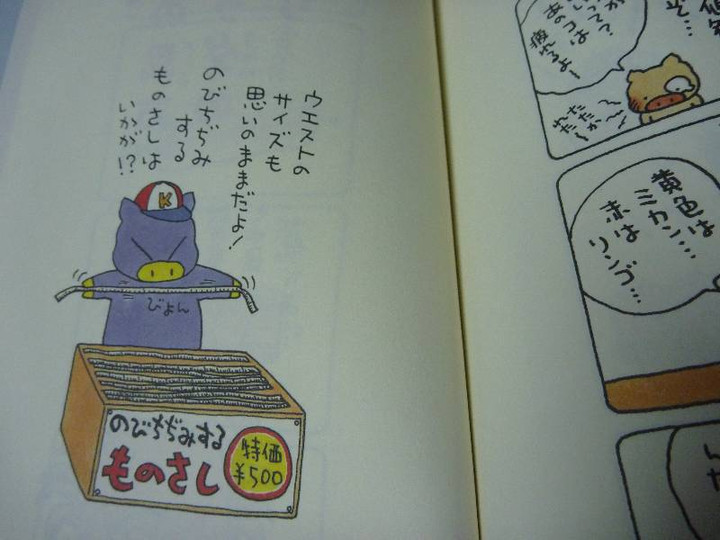 ウエストの
サイズも
思いのままだよ！
のびちぢみ
する
ものさしは
いかが！？
K
びよん
のびちぢみする
ものさし
特価
¥500
あのコは
疲れるよー
黄色は
ミカン…
赤は
リンゴ…